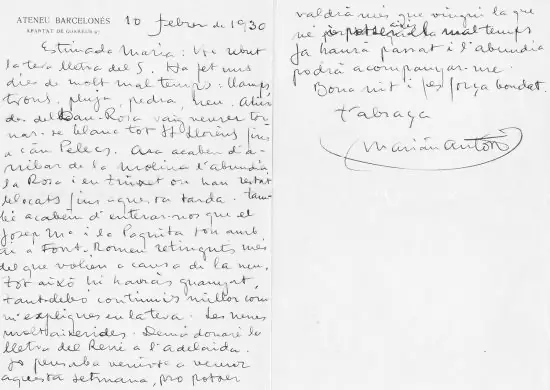 ATENEU BARCELONÈS
APARTAT DE CORREUS 97
10 febrer de 1930
Estimada Maria: He rebut
la teva lletra del 5. Ha fet uns
dies de molt mal temps: llamps
trons, pluja, pedra, neu. Ahir
des del Rosa vaig veure
tornar-se blanc tot St Llorenç fins
a can Pelecs. Ara acaben d'a-
rribar de la molina l'abundi
la Rosa i en on han restat
blocats fins aquesta tarda. Tam-
bé acabem d'enterar-nos que el
Josep Mª i la Paquita ton amb
a Font-Romeu retinguts més
del que volien a causa de la neu.
Tot això hi hauràs guanyat,
tant-debó continuis millor com
m'expliques en la teva. Les neus
molt Demà donaré la
lletra del René a l'Adelaida.
Jo pensaba venirte a veurer
aquesta setmana, pro potser
valdrà més que vingui la que
ve mal temps
ja haurà passat i l'abundi
podrà acompanyar-me.
Bona nit i fes força bondat.
t'abraça
Marián Antón